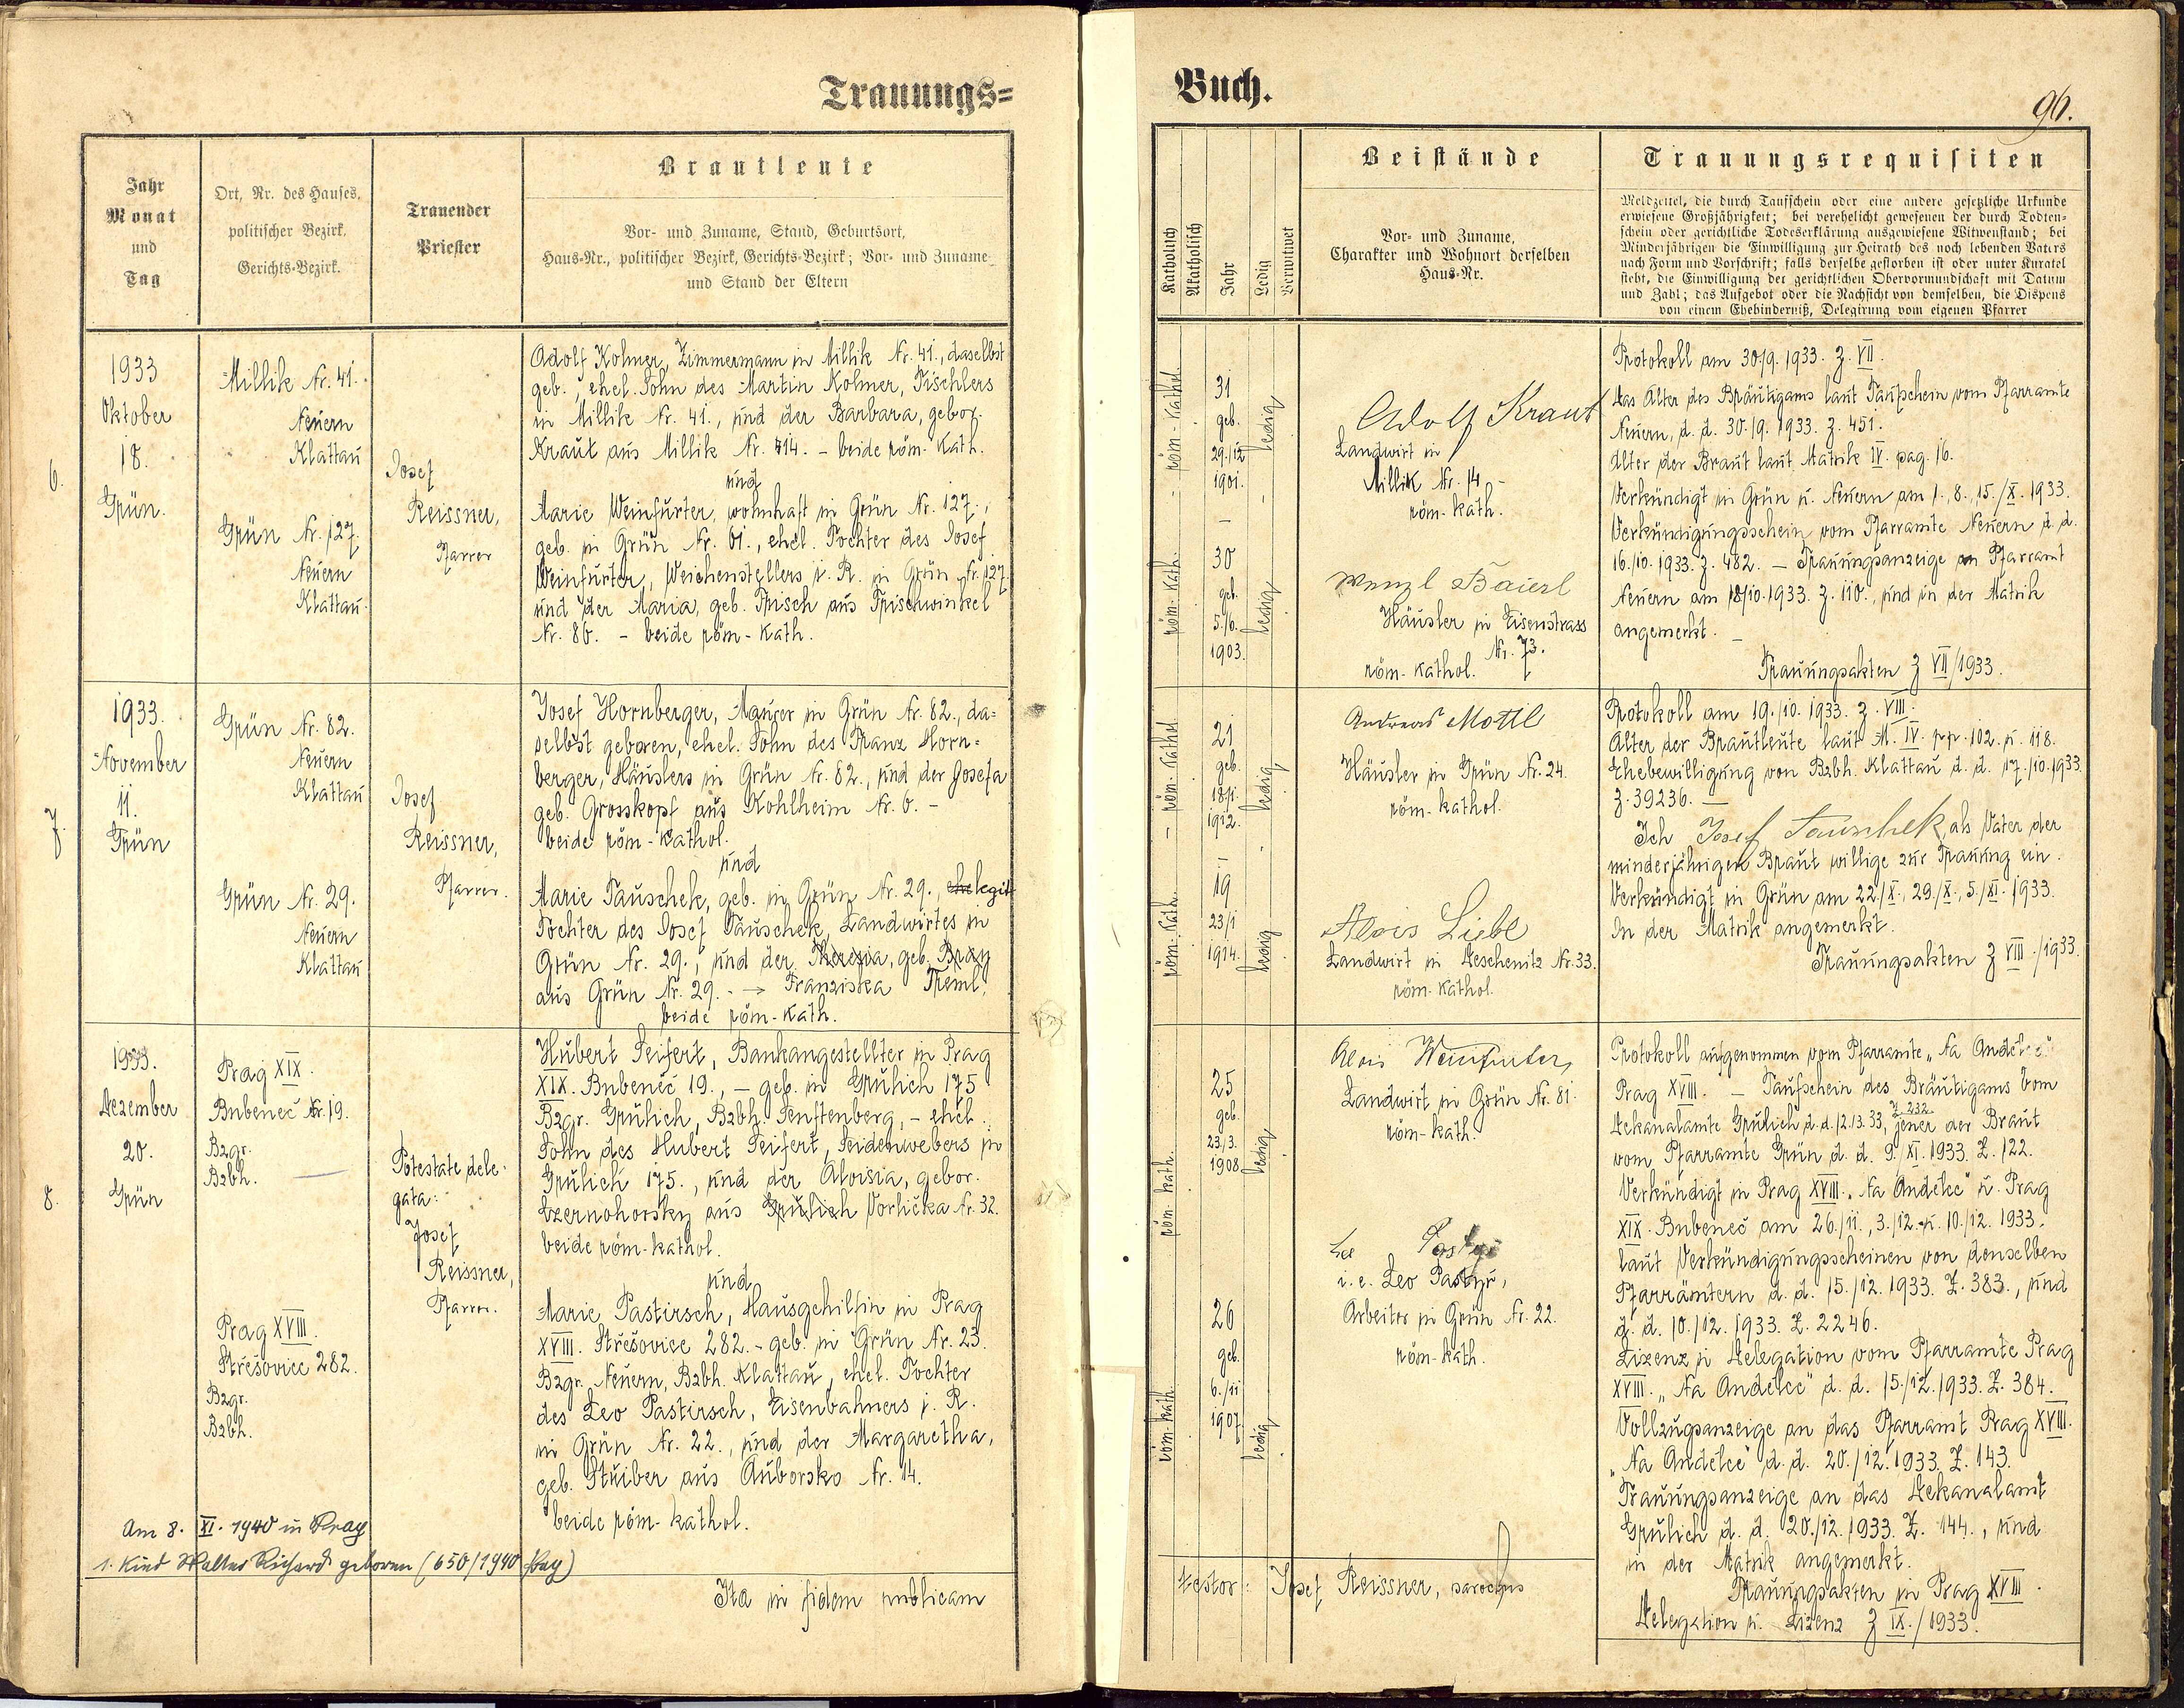 Trauungs=
Jahr
Monat
und
Tag
Ort, Nr. des Hauses,
politischer Bezirk,
Gerichts-Bezirk.
Trauender
Priester
Brautleute
Vor- und Zuname, Stand, Geburtsort,
Haus-Nr., politischer Bezirk, Gerichts-Bezirk; Vor- und Zuname
und Stand der Eltern
6.
1933
Oktober
18.
Grün.
Millik Nr. 41.
Neuern
Klattau
Grün Nr. 127.
Neuern
Klattau.
Josef
Reissner,
Pfarrer
Adolf Kolmer, Zimmermann in Millik Nr. 41., daselbst
geb., ehel. Sohn des Martin Kolmer, Tischlers
in Millik Nr. 41., und der Barbara, gebor.
Kraut aus Millik Nr. 14. - beide röm-kath.
und
Marie Weinfurter, wohnhaft in Grün Nr. 127.,
geb. in Grün Nr. 61., ehel. Tochter des Josef
Weinfurter, Weichenstellers i. R. in Grün Nr. 127.
und der Maria, geb. Frisch aus Frischwinkel
Nr. 86. - beide röm-kath.
7.
1933.
November
11.
Grün
Grün Nr. 82.
Neuern
Klattau
Grün Nr. 29.
Neuern
Klattau
Josef
Reissner,
Pfarrer.
Josef Hornberger, Maurer in Grün Nr. 82., da=
selbst geboren, ehel. Sohn des Franz Horn=
berger, Häuslers in Grün Nr. 82., und der Josefa
geb. Grosskopf aus Kohlheim Nr. 6. -
beide röm-kathol.
und
Marie Tauschek, geb. in Grün Nr. 29., ehe legit
Tochter des Josef Tauschek, Landwirtes in
Grün Nr. 29., und der Theresia, geb. Bray
aus Grün Nr. 29. - → Franziska Treml,
beide röm-kath.
8.
1933.
Dezember
20.
Grün
Prag XIX.
Bubeneč Nr. 19.
Bzgr.
Bzbh.
Prag XVIII.
Střešovice 282.
Bzgr.
Bzbh.
Potestate dele-
gata:
Josef
Reissner,
Pfarrer.
Hubert Seifert, Bankangestellter in Prag
XIX. Bubeneč 19., - geb. in Grulich 175
Bzgr. Grulich, Bzbh. Senftenberg, - ehel.
Sohn des Hubert Seifert, Seidenwebers in
Grulich 175., und der Aloisia, gebor.
Czernohorsky aus Grulich Vorlička Nr. 32.
beide röm-kathol.
und
Marie Pastirsch, Hausgehilfin in Prag
XVIII. Střešovice 282. - geb. in Grün Nr. 23.
Bzgr. Neuern, Bzbh. Klattau, ehel. Tochter
des Leo Pastirsch, Eisenbahners i. R.
in Grün Nr. 22., und der Margaretha,
geb. Stuiber aus Auborsko Nr. 14.
beide röm-kathol.
Am 8. XI. 1940 in Prag
1. Kind Walter Richard geboren (650/1940 Prag)
Ita in fidem publicam
Buch.
96.
Katholisch
Akatholisch
Jahr
Ledig
Verwitwet
Beistände
Vor- und Zuname,
Charakter und Wohnort derselben
Haus-Nr.
Trauungsrequisiten
Meldzettel, die durch Taufschein oder eine andere gesetzliche Urkunde
erwiesene Großjährigkeit; bei verehelicht gewesenen der durch Todten-
schein oder gerichtliche Todeserklärung ausgewiesene Witwenstand; bei
Minderjährigen die Einwilligung zur Heirath des noch lebenden Vaters
nach Form und Vorschrift; falls derselbe gestorben ist oder unter Kuratel
steht, die Einwilligung der gerichtlichen Obervormundschaft mit Datum
und Zahl; das Aufgebot oder die Nachsicht von demselben, die Dispens
von einem Ehehinderniß, Delegirung vom eigenen Pfarrer
röm-kathol.
31
geb.
29./12
1901.
ledig
röm-kath.
30
geb.
5./6.
1903.
ledig
Adolf Kraut
Landwirt in
Millik Nr. 14 -
röm-kath.
Wenzl Baierl
Häusler in Eisenstrass
Nr. 73.
röm-kathol.
Protokoll am 30/9. 1933. z. VII.
Das Alter des Bräutigams laut Taufschein vom Pfarramte
Neuern, d. d. 30./9. 1933. z. 451.
Alter der Braut laut Matrik IV. pag. 16.
Verkündigt in Grün u. Neuern am 1., 8., 15./X. 1933.
Verkündigungsschein vom Pfarramte Neuern d. d.
16./10. 1933. z. 482. - Trauungsanzeige an Pfarramt
Neuern am 18/10. 1933. z. 110., und in der Matrik
angemerkt. -
Trauungsakten z VII/1933.
röm-kathol.
21
geb.
18/1.
1912.
ledig
röm-kath.
19
23/1
1914.
ledig
Andreas Mottl
Häusler in Grün Nr. 24.
röm-kathol.
Alois Liebl
Landwirt in Deschenitz Nr. 33.
röm-kathol.
Protokoll am 19./10. 1933. z. VIII.
Alter der Brautleute laut M. IV. pp. 102. u. 118.
Ehebewilligung von Bzbh. Klattau d. d. 17./10. 1933.
z. 39236. -
Ich Josef Tauschek als Vater der
minderjährigen Braut willige zur Trauung ein.
Verkündigt in Grün am 22./X., 29./X., 5./XI. 1933.
In der Matrik angemerkt.
Trauungsakten z VIII./1933.
röm-kath.
25
geb.
23./3.
1908
ledig
röm-kath.
26
geb.
6./11
1907.
ledig
Alois Weinfurter
Landwirt in Grün Nr. 81.
röm-kath.
i. e. Leo Pastyr,
Arbeiter in Grün Nr. 22.
röm-kath.
Protokoll aufgenommen vom Pfarramte „Na Andělce"
Prag XVIII. - Taufschein des Bräutigams vom
Dekanalamte Grulich d. d. 12./3. 33, Z. 232. jener der Braut
vom Pfarramte Grün d. d. 9./XI. 1933. Z. 122.
Verkündigt in Prag XVIII. „Na Andělce" u. Prag
XIX. Bubeneč am 26./11., 3./12. u. 10./12. 1933.
laut Verkündigungsscheinen von denselben
Pfarrämtern d. d. 15./12. 1933. Z. 383., und
d. d. 10./12. 1933. Z. 2246.
Lizenz u. Delegation vom Pfarramte Prag
XVIII. „Na Andělce" d. d. 15./12. 1933. Z. 384.
Vollzugsanzeige an das Pfarramt Prag XVIII.
„Na Andělce" d. d. 20./12. 1933. Z. 143.
Trauungsanzeige an das Dekanalamt
Grulich d. d. 20./12. 1933. Z. 144., und
in der Matrik angemerkt.
Trauungsakten in Prag XVIII.
Delegation u. Lizenz z IX./1933.
testor: Josef Reissner, parochus